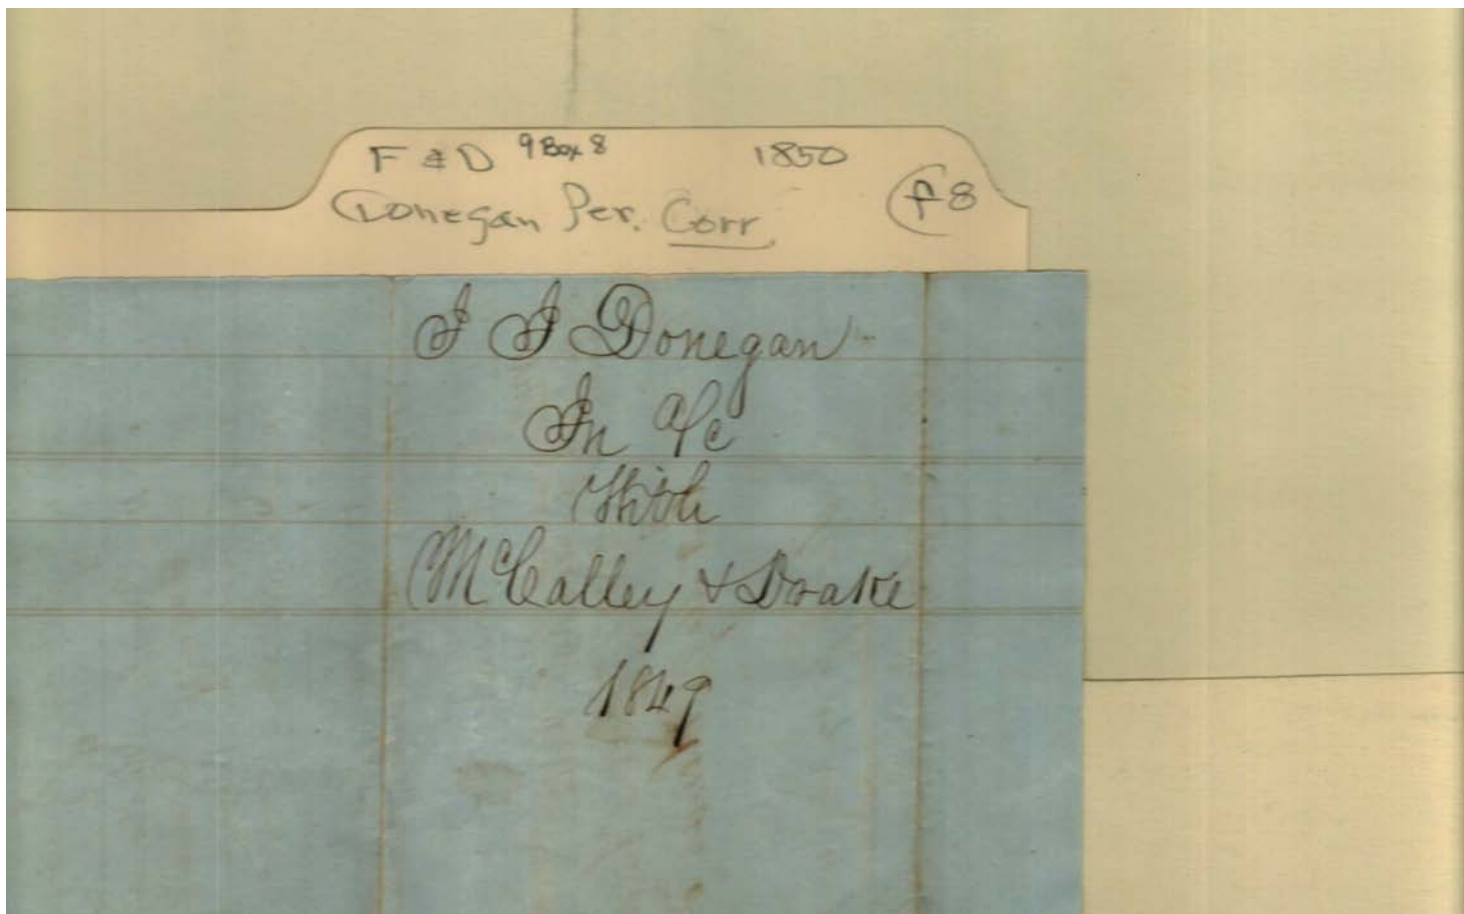 F & D 9 Box 8 1850
Donegan Per. Corr. f8
J J Donegan
In a/c
With
McCalley & Drake
1849